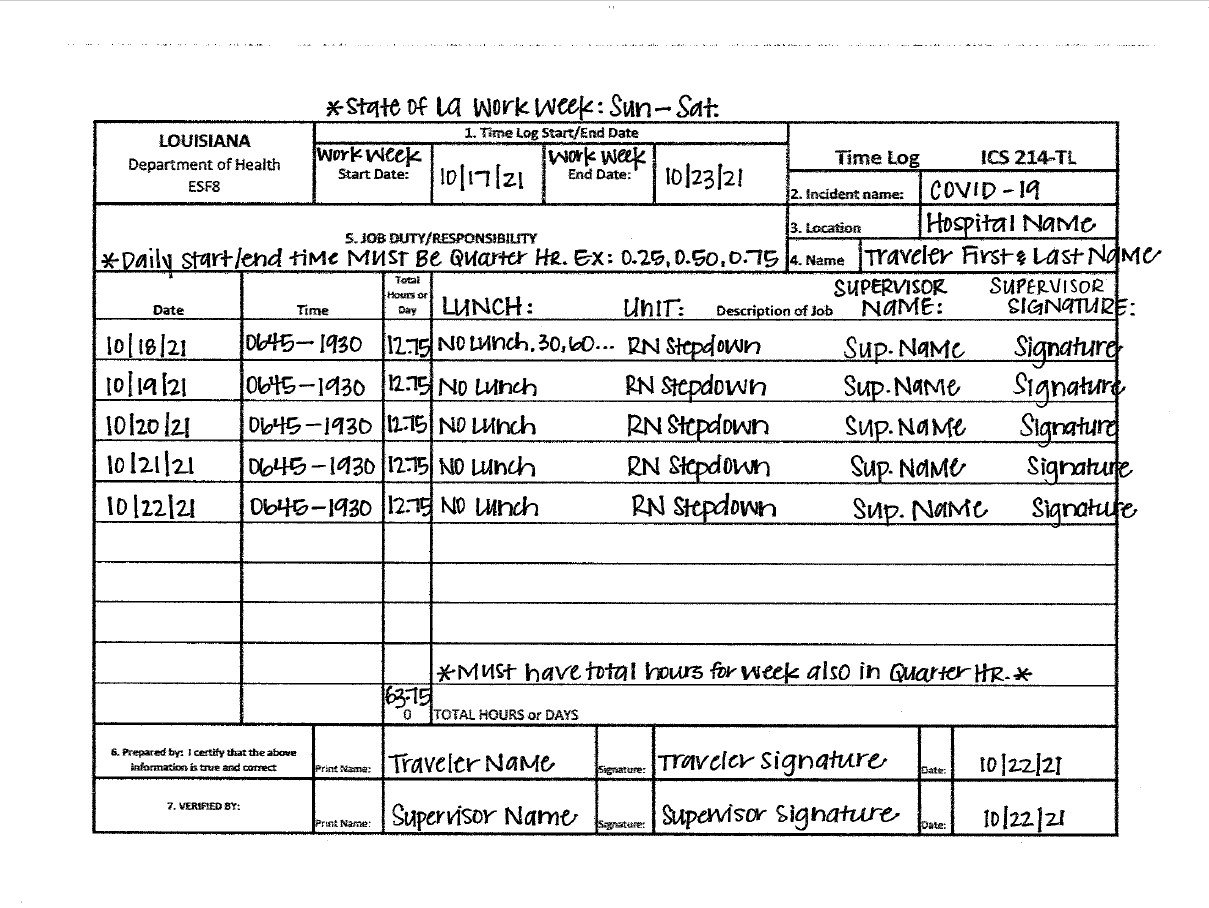 *State of LA Work Week: Sun-Sat.
LOUISIANA
Department of Health
ESF8
1. Time Log Start/End Date
Work Week
Start Date:
10|17|21
Work Week
End Date:
10|23|21
Time Log ICS 214-TL
2. Incident name: COVID-19
3. Location Hospital Name
4. Name Traveler First & Last Name
5. JOB DUTY/RESPONSIBILITY
*Daily start/end time MUST Be Quarter Hr. Ex: 0.25, 0.50, 0.75
Date Time Total Hours or Day LUNCH: UNIT: Description of Job SUPERVISOR NAME: SUPERVISOR SIGNATURE:
10|18|21 0645-1930 12.75 No Lunch, 30, 60... RN Stepdown Sup. Name Signature
10|19|21 0645-1930 12.75 No Lunch RN Stepdown Sup. Name Signature
10|20|21 0645-1930 12.75 No Lunch RN Stepdown Sup. Name Signature
10|21|21 0645-1930 12.75 No Lunch RN Stepdown Sup. Name Signature
10|22|21 0645-1930 12.75 No Lunch RN Stepdown Sup. Name Signature
*Must have total hours for week also in Quarter HR.*
63.75
0 TOTAL HOURS or DAYS
6. Prepared by: I certify that the above
information is true and correct
Print Name: Traveler Name Signature: Traveler Signature Date: 10|22|21
7. VERIFIED BY:
Print Name: Supervisor Name Signature: Supervisor Signature Date: 10|22|21